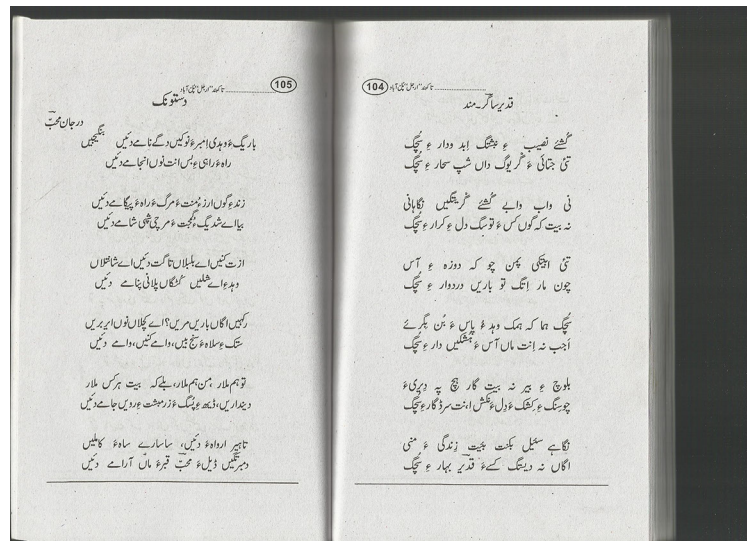 104
قدیر ساگر۔ مند
گُشئے نصیب ءِ بِتنگ اِبد ودار ءِ سُچگ
تئی جتائی ءَ گریوگ داں شپ سحار ءِ سُچگ
نی واب وابے گُشئے گریتگیں نگاہانی
نہ بیت کہ گوں کس ءَ توسگ دل ءِ کرار ءِ سُچگ
تئی ابیتکی پمن چو کہ دوزہ ءِ آس
چون مار اِتگ تو باریں وردوار ءِ سُچگ
سُچگ ہما کہ ہمک وہد ءُ پاس ءَ بُن بگرئے
اَجب نہ اِنت ماں آس ءَ ہُشکیں دار ءِ سُچگ
بلوچ ءِ بیر نہ بیت گار ہچ پہ دیری ءَ
چو سنگ ءِ کشک ءَ دل ءَ نکش اِنت سرڈگار ءِ سُچگ
نگاہے سئیل بکنت بئیت زندگی ءَ منی
اگاں نہ دیستگ کسے ءَ قدیر بہار ءِ سُچگ
105
دستونک
درجان محبّ
باریگ ءَ وہدی اِمبر ءَ نوکیں دگے نامے دئیں
راہ ءَ راہی ءِ بس انت نوں انجامے دئیں
زند ءِ گوں ارز ءُ مُنت ءَ مرگ ءَ راہ ءَ پیگامے دئیں
بیا اے شدیگ ءُ گُجت ءَ مرچی شپی شامے دئیں
ازت کنیں اے بلبلاں تاگت دئیں اے شانتلاں
وہد ءِ اے شلیں گٹگاں پلانی پنامے دئیں
رکہیں اگاں باریں مریں؟ اے کچلاں نوں ایر بریں
ستک ءِ سلاہ ءَ سنج بیں، وامے کنیں، وامے دئیں
تو ہم ملار، من ہم ملار، بلے کہ بیت ہرکس ملار
دینداریں، ڈیہہ ءِ پُسگ ءَ زر مہشت ءِ رودیں جامے دئیں
تاہیر ارواہ ءَ دئیں، ساسارے ساہ ءَ کاملیں
دمبرتگیں ڈیل ءَ محبّ قبر ءَ ماں آرامے دئیں